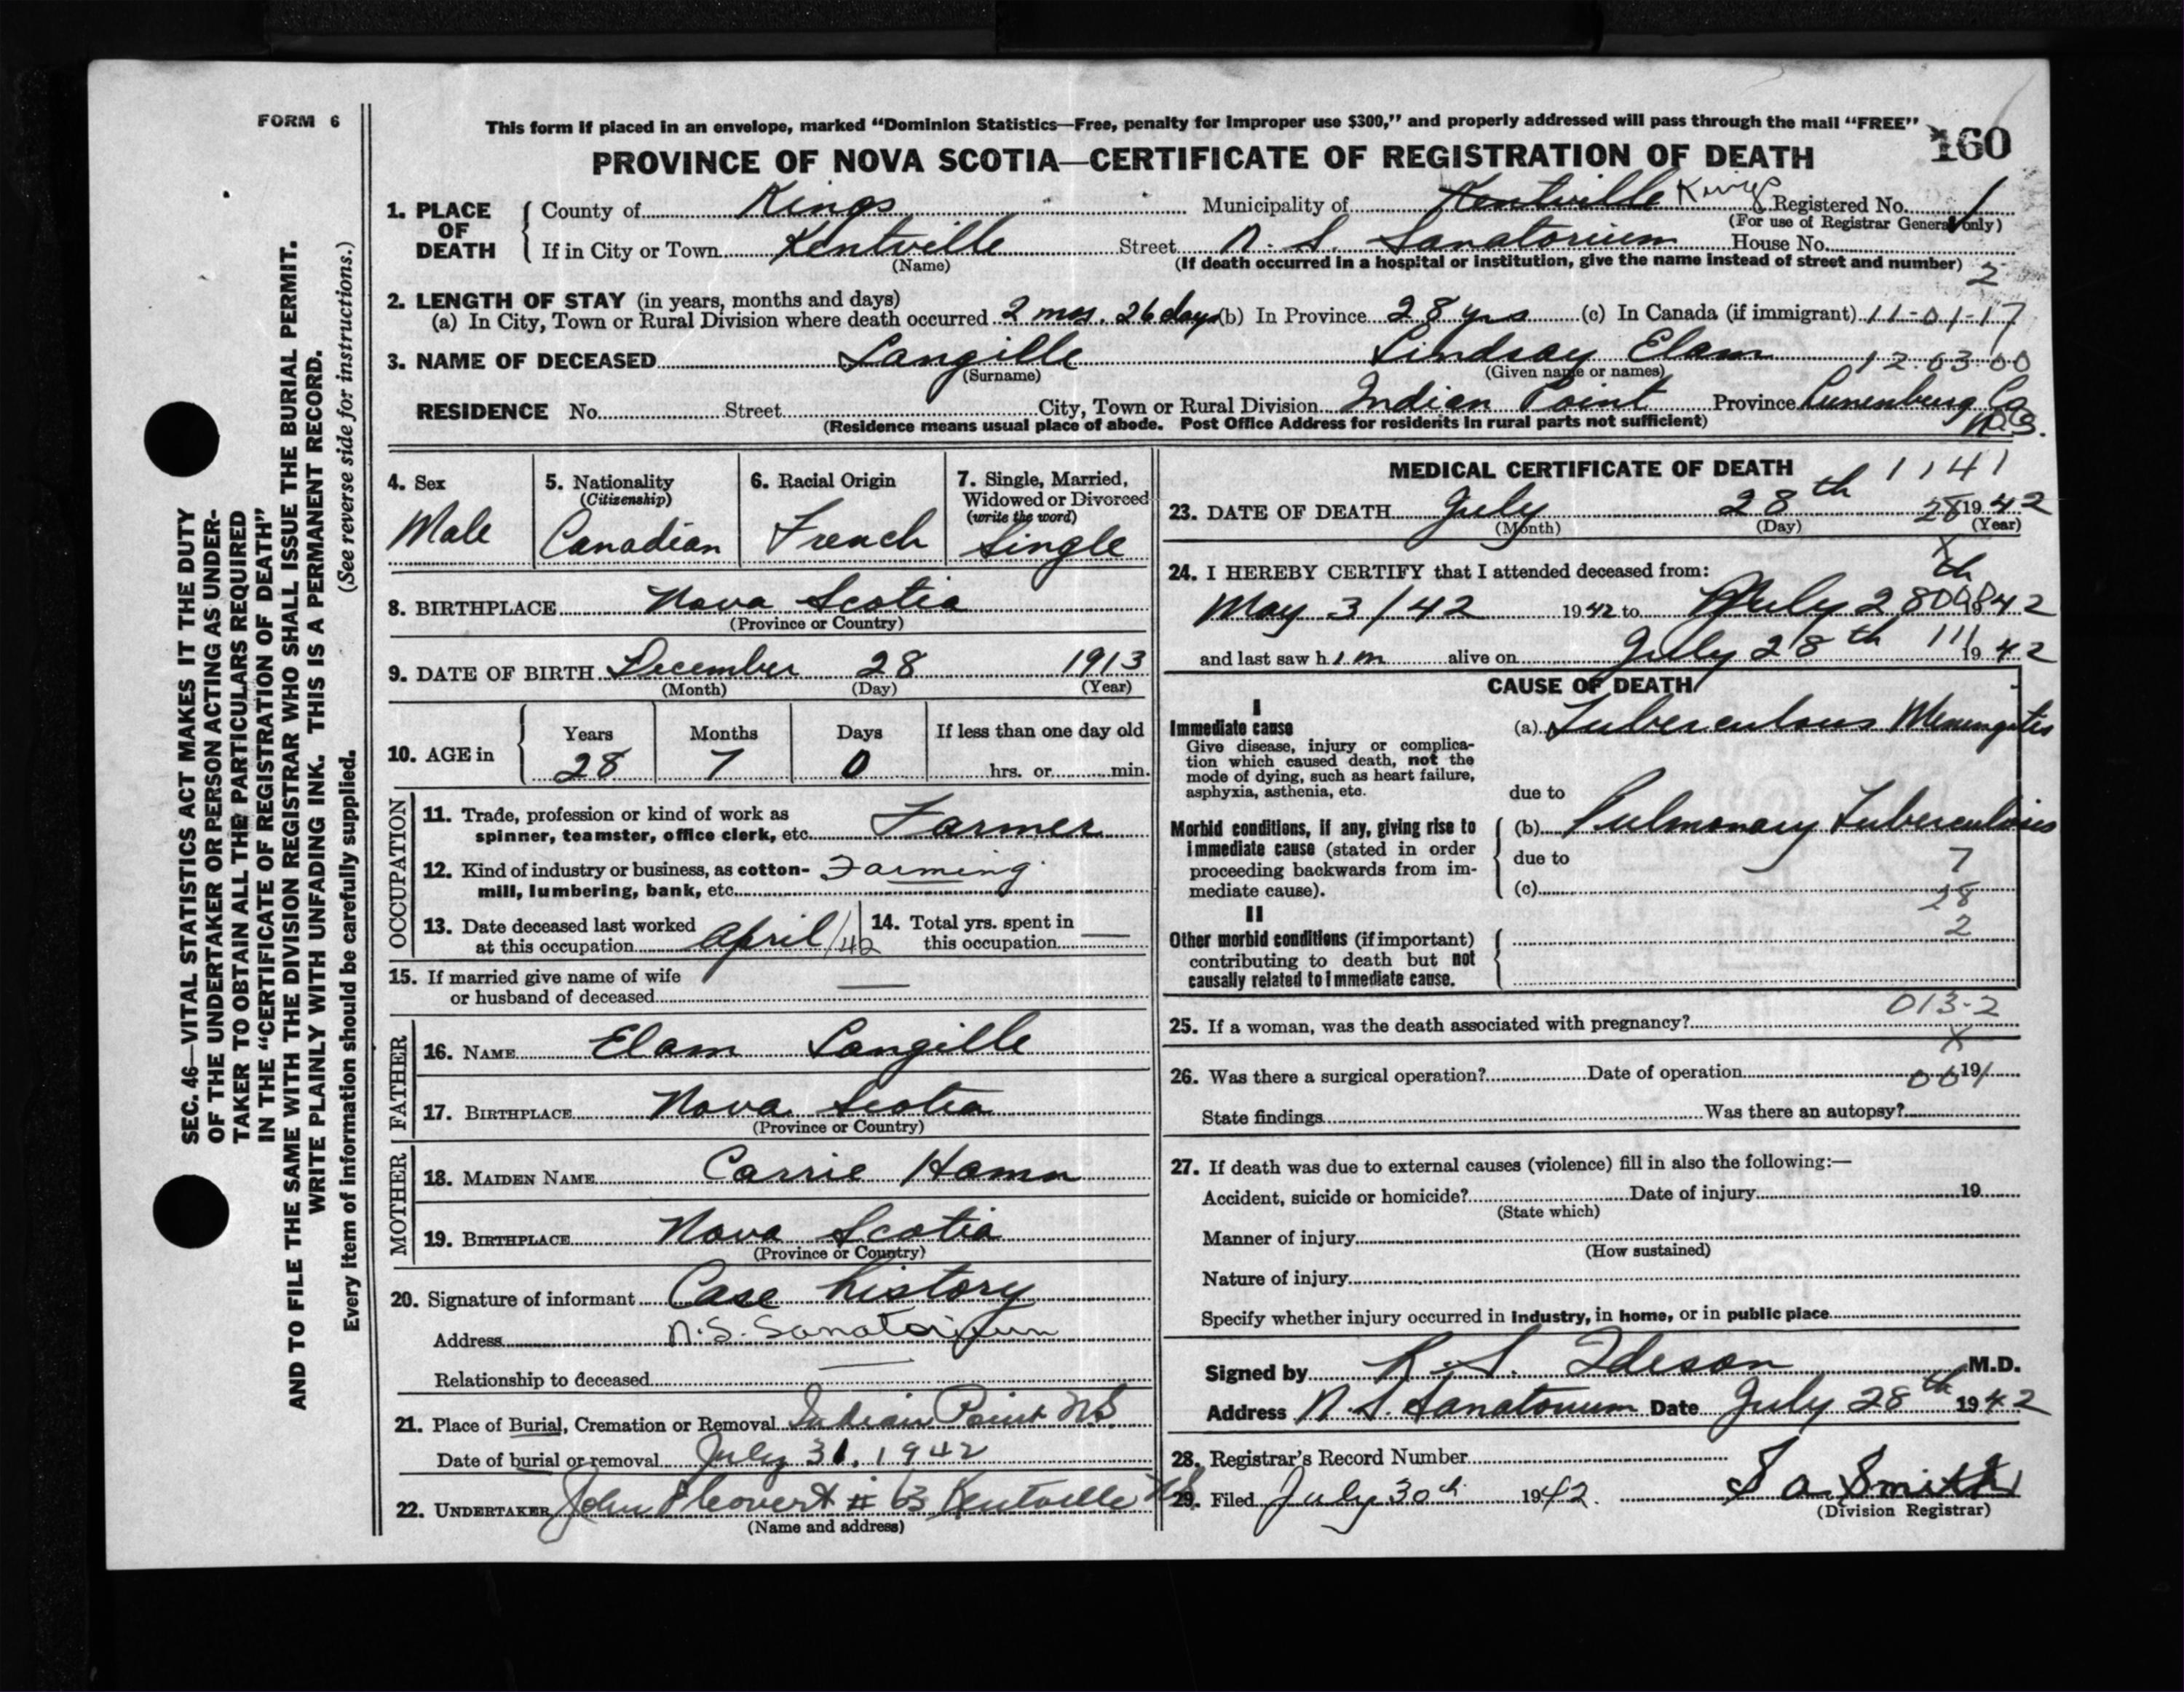 FORM 6
This form if placed in an envelope, marked "Dominion Statistics—Free, penalty for improper use $300," and properly addressed will pass through the mail "FREE"
160
PROVINCE OF NOVA SCOTIA—CERTIFICATE OF REGISTRATION OF DEATH
1. PLACE OF DEATH
County of Kings Municipality of Kentville Kings Registered No.
(For use of Registrar General only)
If in City or Town Kentville Street N. S. Sanatorium House No.
(Name) (If death occurred in a hospital or institution, give the name instead of street and number)
2
2. LENGTH OF STAY (in years, months and days)
(a) In City, Town or Rural Division where death occurred 2 mos. 26 days (b) In Province 28 yrs (c) In Canada (if immigrant) 11-01-17
3. NAME OF DECEASED Langille Lindsay Elam 12.03.00
(Surname) (Given name or names)
RESIDENCE No. Street City, Town or Rural Division Indian Point Province Lunenburg Co N.S.
(Residence means usual place of abode. Post Office Address for residents in rural parts not sufficient)
4. Sex
Male
5. Nationality
(Citizenship)
Canadian
6. Racial Origin
French
7. Single, Married,
Widowed or Divorced
(write the word)
Single
8. BIRTHPLACE Nova Scotia
(Province or Country)
9. DATE OF BIRTH December 28 1913
(Month) (Day) (Year)
10. AGE in
Years Months Days If less than one day old
28 7 0 hrs. or min.
OCCUPATION
11. Trade, profession or kind of work as
spinner, teamster, office clerk, etc. Farmer
12. Kind of industry or business, as cotton-
mill, lumbering, bank, etc. Farming
13. Date deceased last worked
at this occupation April/42
14. Total yrs. spent in
this occupation —
15. If married give name of wife
or husband of deceased —
FATHER
16. NAME Elam Langille
17. BIRTHPLACE Nova Scotia
(Province or Country)
MOTHER
18. MAIDEN NAME Carrie Hamn
19. BIRTHPLACE Nova Scotia
(Province or Country)
20. Signature of informant Case history
Address N.S. Sanatorium
Relationship to deceased —
21. Place of Burial, Cremation or Removal Indian Point NS
Date of burial or removal July 31, 1942
22. UNDERTAKER John # 63 Kentville NS
(Name and address)
MEDICAL CERTIFICATE OF DEATH
1141
23. DATE OF DEATH July 28th 28 1942
(Month) (Day) (Year)
X
24. I HEREBY CERTIFY that I attended deceased from:
May 3/42 1942 to July 28th 1942
and last saw him alive on July 28th 111 1942
CAUSE OF DEATH
I
Immediate cause
Give disease, injury or complica-
tion which caused death, not the
mode of dying, such as heart failure,
asphyxia, asthenia, etc.
(a) Tuberculous Meningitis
due to
Morbid conditions, if any, giving rise to
immediate cause (stated in order
proceeding backwards from im-
mediate cause).
(b) Pulmonary Tuberculosis
due to
7
(c)
28
II
2
Other morbid conditions (if important)
contributing to death but not
causally related to immediate cause.
013-2
25. If a woman, was the death associated with pregnancy?
X
26. Was there a surgical operation? Date of operation 19
001
State findings Was there an autopsy?
27. If death was due to external causes (violence) fill in also the following:—
Accident, suicide or homicide? Date of injury 19
(State which)
Manner of injury
(How sustained)
Nature of injury
Specify whether injury occurred in industry, in home, or in public place
Signed by R. S. Ideson M.D.
Address N. S. Sanatorium Date July 28th 1942
28. Registrar's Record Number
29. Filed July 30th 1942. Smith
(Division Registrar)
SEC. 46—VITAL STATISTICS ACT MAKES IT THE DUTY
OF THE UNDERTAKER OR PERSON ACTING AS UNDER-
TAKER TO OBTAIN ALL THE PARTICULARS REQUIRED
IN THE "CERTIFICATE OF REGISTRATION OF DEATH"
AND TO FILE THE SAME WITH THE DIVISION REGISTRAR WHO SHALL ISSUE THE BURIAL PERMIT.
WRITE PLAINLY WITH UNFADING INK. THIS IS A PERMANENT RECORD.
Every item of information should be carefully supplied. (See reverse side for instructions.)